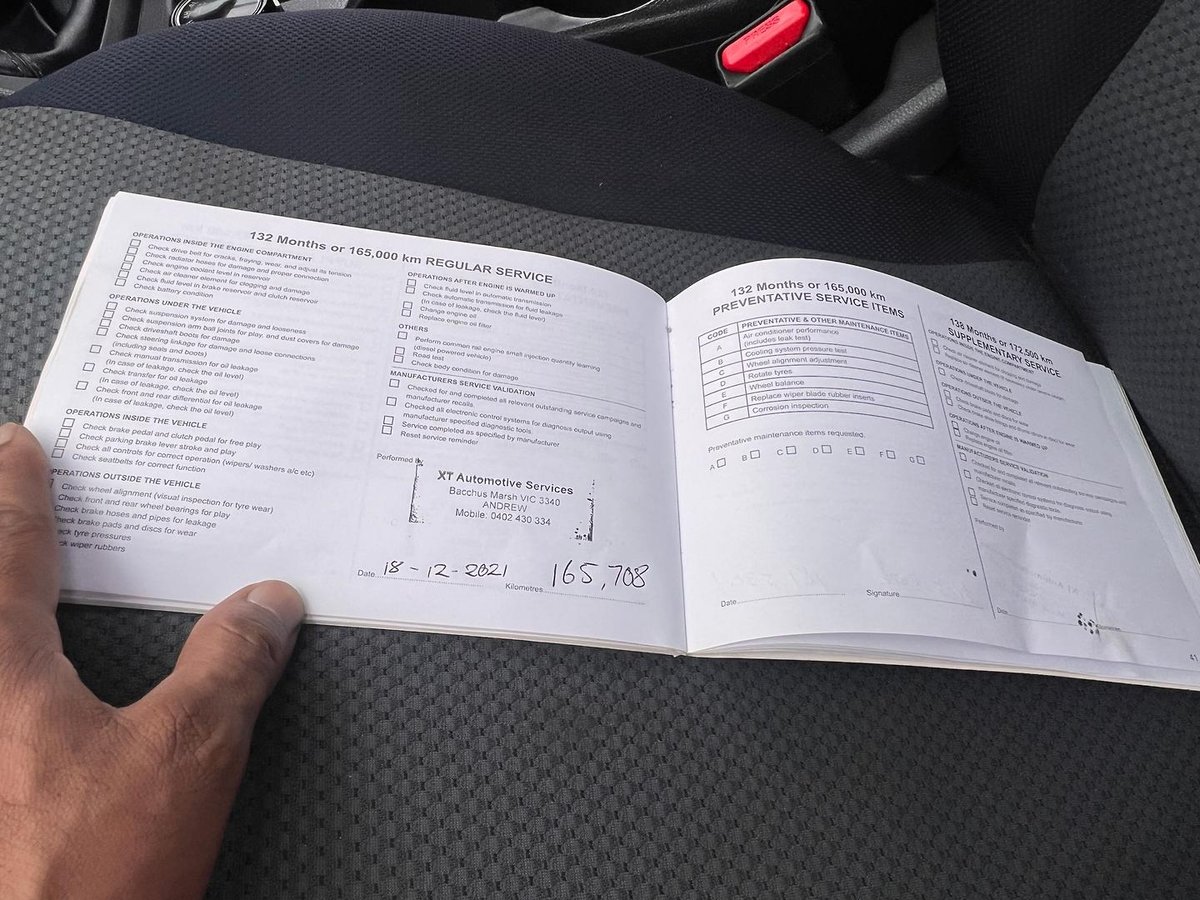 PRESS
132 Months or 165,000 km REGULAR SERVICE
OPERATIONS INSIDE THE ENGINE COMPARTMENT
Check drive belt for cracks, fraying, wear, and adjust its tension
Check radiator hoses for damage and proper connection
Check engine coolant level in reservoir
Check air cleaner element for clogging and damage
Check fluid level in brake reservoir and clutch reservoir
Check battery condition
OPERATIONS UNDER THE VEHICLE
Check suspension system for damage and looseness
Check suspension arm ball joints for play, and dust covers for damage
Check driveshaft boots for damage
Check steering linkage for damage and loose connections
(including seals and boots)
Check manual transmission for oil leakage
(In case of leakage, check the oil level)
Check transfer for oil leakage
(In case of leakage, check the oil level)
Check front and rear differential for oil leakage
(In case of leakage, check the oil level)
OPERATIONS INSIDE THE VEHICLE
Check brake pedal and clutch pedal for free play
Check parking brake lever stroke and play
Check all controls for correct operation (wipers/ washers a/c etc)
Check seatbelts for correct function
OPERATIONS OUTSIDE THE VEHICLE
Check wheel alignment (visual inspection for tyre wear)
Check front and rear wheel bearings for play
Check brake hoses and pipes for leakage
heck brake pads and discs for wear
eck tyre pressures
ck wiper rubbers
OPERATIONS AFTER ENGINE IS WARMED UP
Check fluid level in automatic transmission
Check automatic transmission for fluid leakage
(In case of leakage, check the fluid level)
Change engine oil
Replace engine oil filter
OTHERS
Perform common rail engine small injection quantity learning
(diesel powered vehicle)
Road test
Check body condition for damage
MANUFACTURERS SERVICE VALIDATION
Checked for and completed all relevant outstanding service campaigns and
manufacturer recalls
Checked all electronic control systems for diagnosis output using
manufacturer specified diagnostic tools
Service completed as specified by manufacturer
Reset service reminder
Performed by
XT Automotive Services
Bacchus Marsh VIC 3340
ANDREW
Mobile: 0402 430 334
Date 18-12-2021 Kilometres 165,708
132 Months or 165,000 km
PREVENTATIVE SERVICE ITEMS
CODE PREVENTATIVE & OTHER MAINTENANCE ITEMS
A Air conditioner performance
(includes leak test)
B Cooling system pressure test
C Wheel alignment adjustment
D Rotate tyres
E Wheel balance
F Replace wiper blade rubber inserts
G Corrosion inspection
Preventative maintenance items requested.
A B C D E F G
Date Signature
138 Months or 172,500 km
SUPPLEMENTARY SERVICE
OPERATIONS INSIDE THE ENGINE COMPARTMENT
OPERATIONS UNDER THE VEHICLE
OPERATIONS OUTSIDE THE VEHICLE
OPERATIONS AFTER ENGINE IS WARMED UP
Change engine oil
Replace engine oil filter
MANUFACTURERS SERVICE VALIDATION
Checked for and completed all relevant outstanding service campaigns and
manufacturer recalls
Checked all electronic control systems for diagnosis output using
manufacturer specified diagnostic tools
Service completed as specified by manufacturer
Reset service reminder
Performed by
Date Kilometres
41